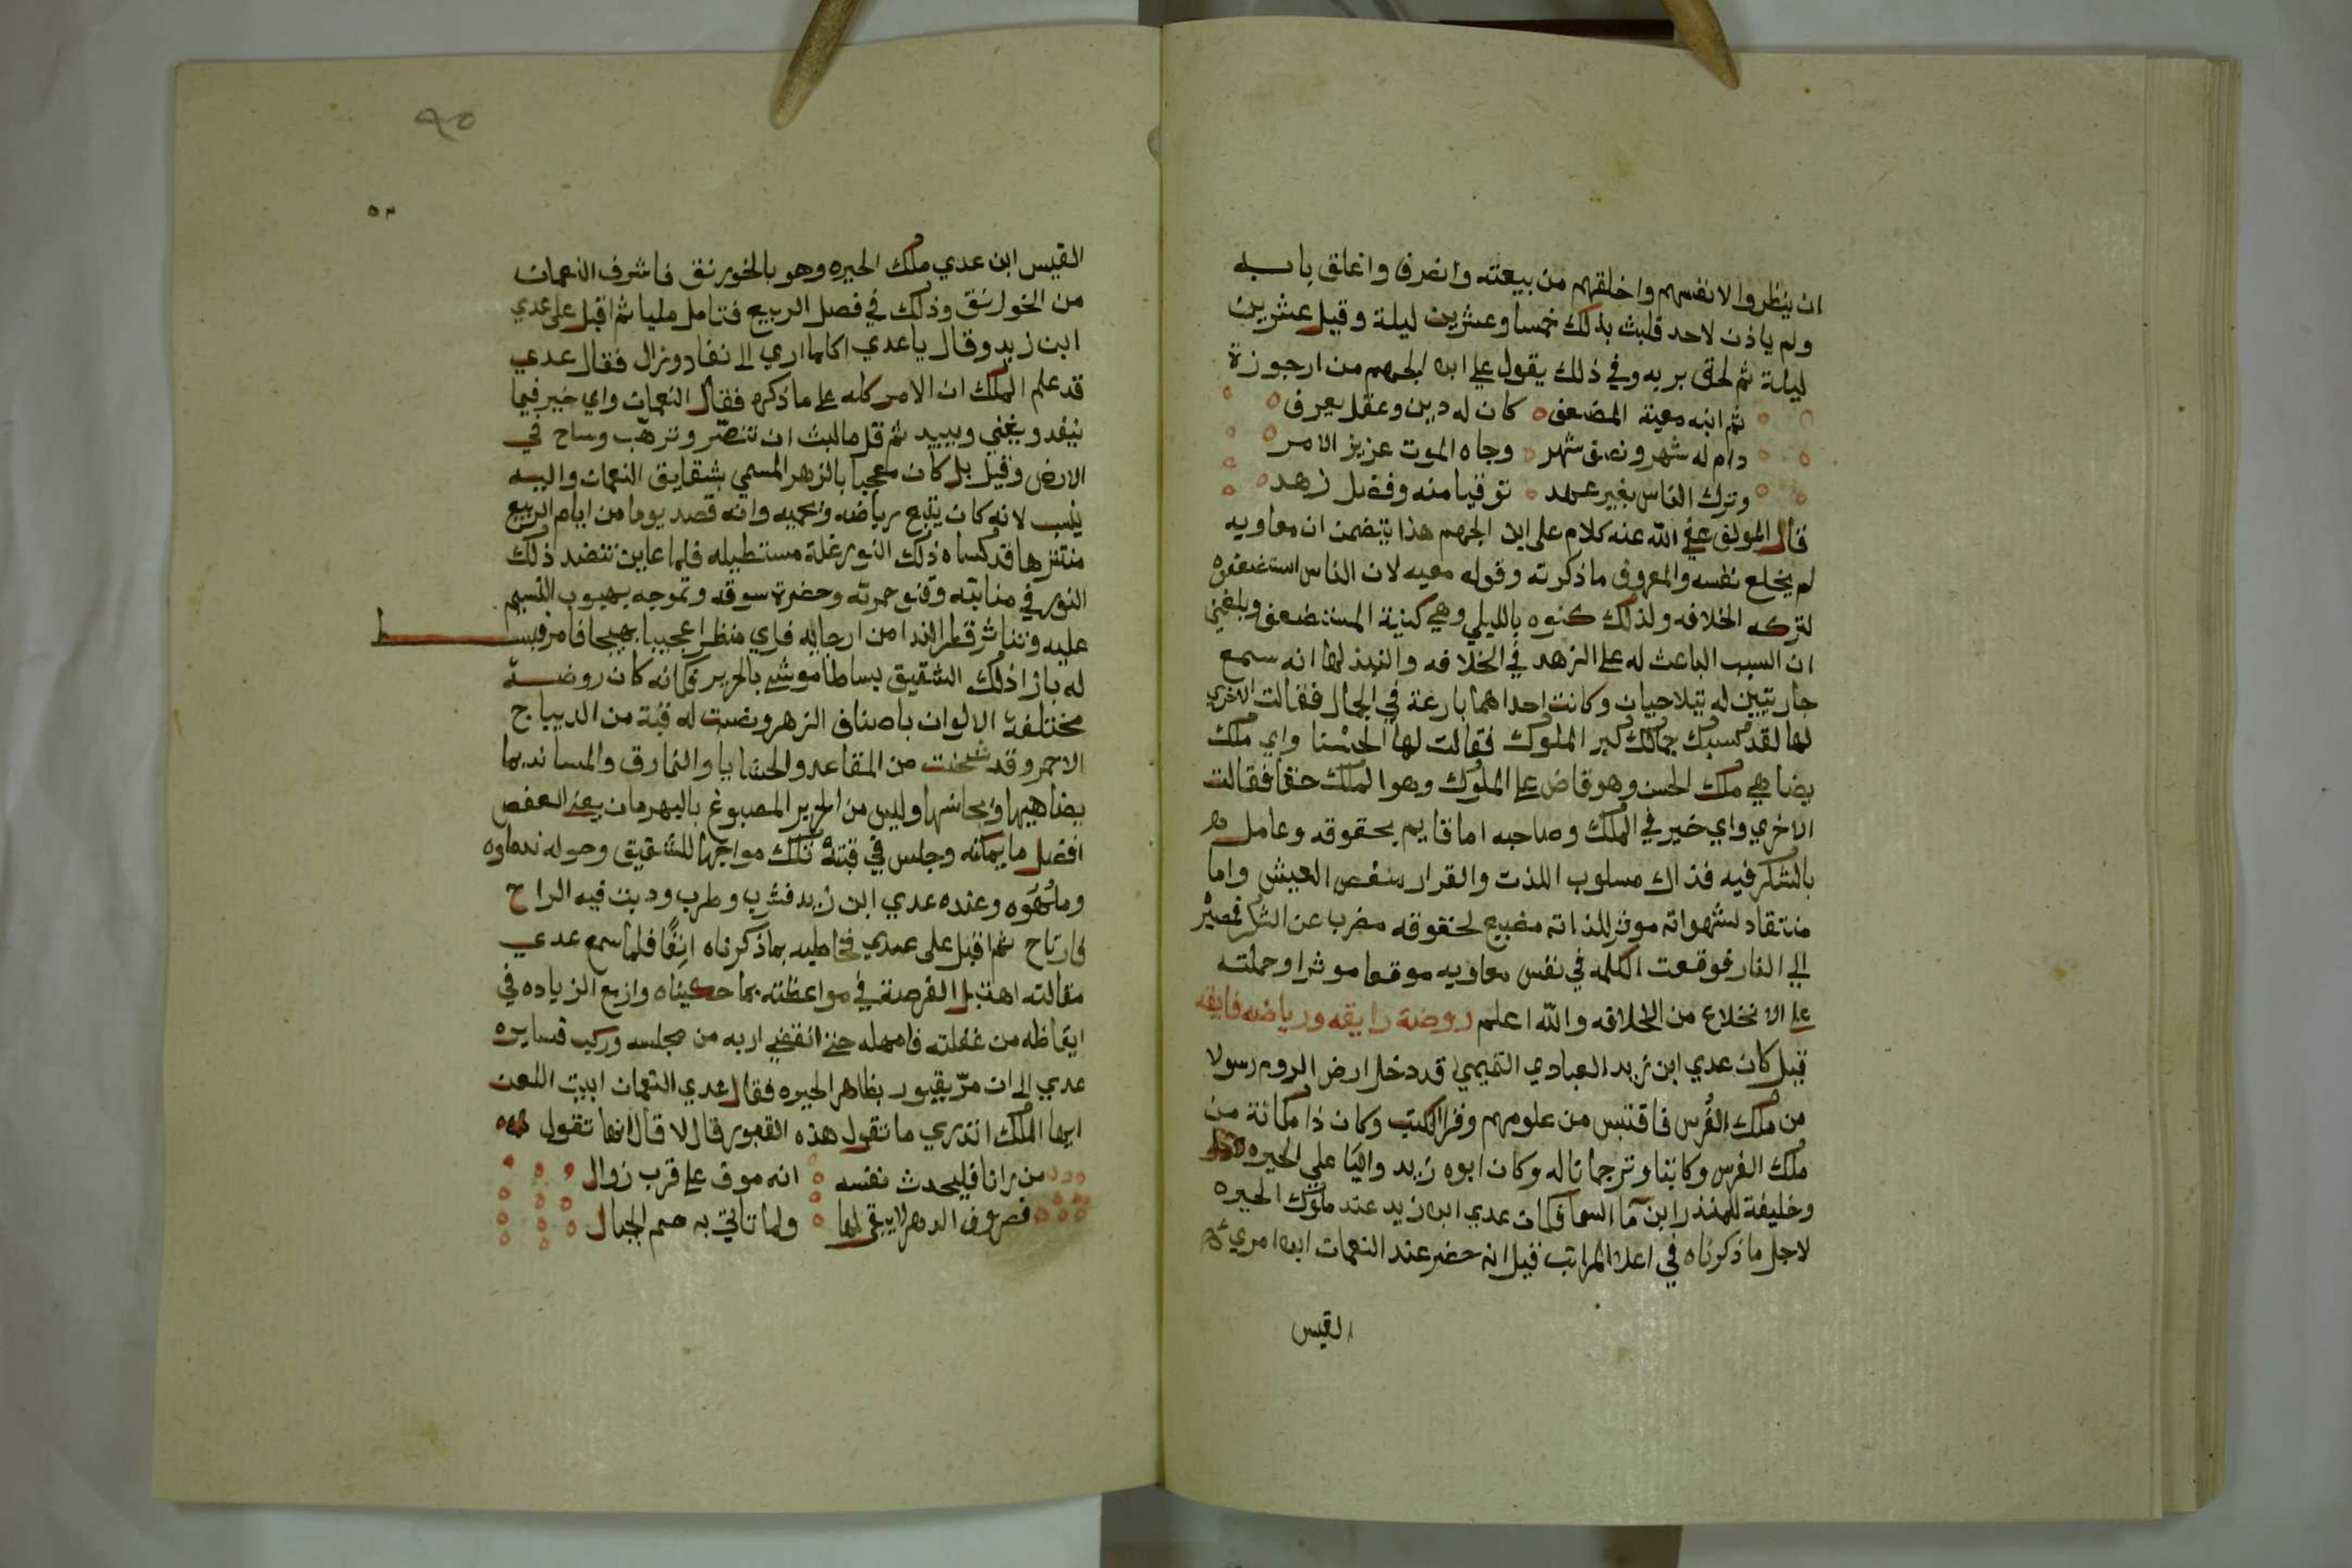 ان ينظروا لانفسهم واخلقهم من بيعته وانصرف واغلق بابه
ولم ياذن لاحد فلبث بذلك خمسا وعشرين ليلة وقيل عشرين
ليلة ثم لحق بربه وفي ذلك يقول علي ابن الجهم من ارجوزة
ثم ابنه معية المضعف كان له دين وعقل يعرف
دام له شهر ونصف شهر وجاه الموت عزيز الامر
وترك الناس بغير عهد توقيا منه وفضل زهد
قال المولف عفي الله عنه كلام على ابن الجهم هذا يتضمن ان معاويه
لم يخلع نفسه والمعروف ما ذكرته وقوله معيه لان الناس استضعفوه
لتركه الخلافه ولذلك كنوه بالليلي وهي كنية المستضعف وبلغني
ان السبب الباعث له على الزهد في الخلافه والنبذ لها انه سمع
جاريتين له يتلاحيان وكانت احداهما بارعة في الجمال فقالت الاخري
لها لقد كسبك جمالك كبر الملوك فقالت لها الحسنا واي ملك
يضاهي ملك الحسن وهو قاض على الملوك وهو الملك حقا فقالت
الاخري واي خير في الملك وصاحبه اما قايم بحقوقه وعامل
بالشكر فيه فذاك مسلوب اللذت والقرار منغص العيش واما
منتقاد لشهواته موثر للذاته مضيع لحقوقه مضرب عن الشكر فمصيره
الى النار فوقعت الكلمه في نفس معاويه موقعا موثرا وحملته
على الانخلاع من الخلافه والله اعلم روضة رايقه ورياضه فايقه
قيل كان عدي ابن زيد العبادي التميمي قد دخل ارض الروم رسولا
من ملك الفرس فاقتبس من علومهم وقرا الكتب وكان ذا مكانة من
ملك الفرس وكاتبا وترجمانا له وكان ابوه زيد واليا علي الحيره
وخليفة للمنذر ابن ما السما فكان عدي ابن زيد عند ملوك الحيره
لاجل ما ذكرناه في اعلا المراتب قيل انه حضر عند النعمان ابن امري
القيس
القيس ابن عدي ملك الحيره وهو بالخورنق فاشرف النعمان
من الخورنق وذلك في فصل الربيع فتامل مليا ثم اقبل على عدي
ابن زيد وقال يا عدي اكلما اري الى نفاد وزال فقال عدي
قد علم الملك ان الامر كله على ما ذكره فقال النعمان واي خير فيما
ينفد ويفني ويبيد ثم قل ما لبث ان تنصر وترهب وساح في
الارض وقيل بل كان معجبا بالزهر المسمي بشقايق النعمان واليه
ينسب لانه كان يتبع رياضه ويحميه وانه قصد يوما من ايام الربيع
منتزها قد كساه ذلك النور غلة مستطيله فلما عاين تنضد ذلك
النور في منابته وقنو حمرته وخضرة سوقه وتموجه بهبوب النسيم
عليه وتناثر قطر الندا من ارجايه فراي منظرا عجيبا بهيجا فامر فبسط
له بازا ذلك الشقيق بساطا موشي بالحرير فكانه كان روضة
مختلفة الالوان باصناف الزهر ونصبت له قبة من الديباج
الاحمر وقد شحنت من المقاعد والحشايا والنمارق والمساند بما
يضاهيها ويجانسها ولبس من الحرير المصبوغ بالبهرمان يعني العفص
افضل ما يمكنه وجلس في قبته تلك مواجها للشقيق وحوله ندماوه
وملهوه وعنده عدي ابن زيد فشرب وطرب ودبت فيه الراح
فارتاح ثم اقبل على عدي فخاطبه بما ذكرناه انفا فلما سمع عدي
مقالته اهتبل الفرصة في مواعظته بما حكيناه وازمع الزياده في
ايقاظه من غفلته فامهله حتى انقضي اربه من مجلسه وركب فسايره
عدي الى ان مر بقبور بظاهر الحيره فقال عدي النعمان ابيت اللعن
ايها الملك اتدري ما تقول هذه القبور قال لا قال انها تقول
من رانا فليحدث نفسه انه موف على قرب زوال
فصروف الدهر لا يبقي لها ولما تاتي به صم الجبال